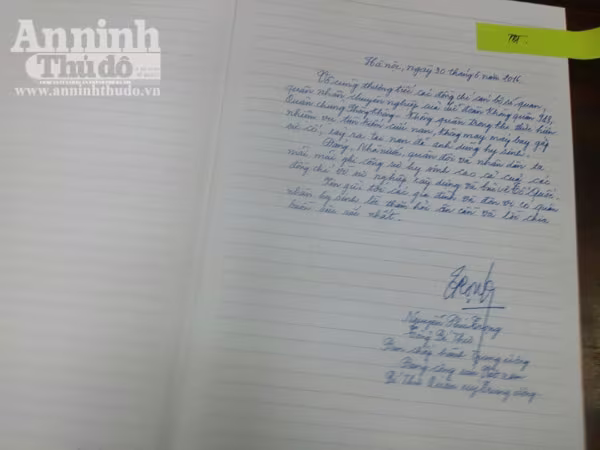 An ninh
Thủ đô
www.anninhthudo.vn
Hà nội, ngày 30 tháng 6 năm 2016
Vô cùng thương tiếc các đồng chí cán bộ sĩ quan,
quân nhân chuyên nghiệp của Lữ đoàn Không quân 918,
Quân chủng Phòng không - Không quân trong khi thực hiện
nhiệm vụ tìm kiếm cứu nạn, không may máy bay gặp
sự cố, xảy ra tai nạn đã anh dũng hy sinh.
Đảng, Nhà nước, quân đội và nhân dân ta
mãi mãi ghi công sự hy sinh cao cả của các
đồng chí vì sự nghiệp xây dựng và bảo vệ Tổ Quốc.
Xin gửi tới các gia đình và đơn vị có quân
nhân hy sinh lời thăm hỏi ân cần và lời chia
buồn sâu sắc nhất.
Trọng
Nguyễn Phú Trọng
Tổng Bí Thư
Ban chấp hành Trung ương
Đảng cộng sản Việt nam
Bí Thư Quân ủy Trung ương